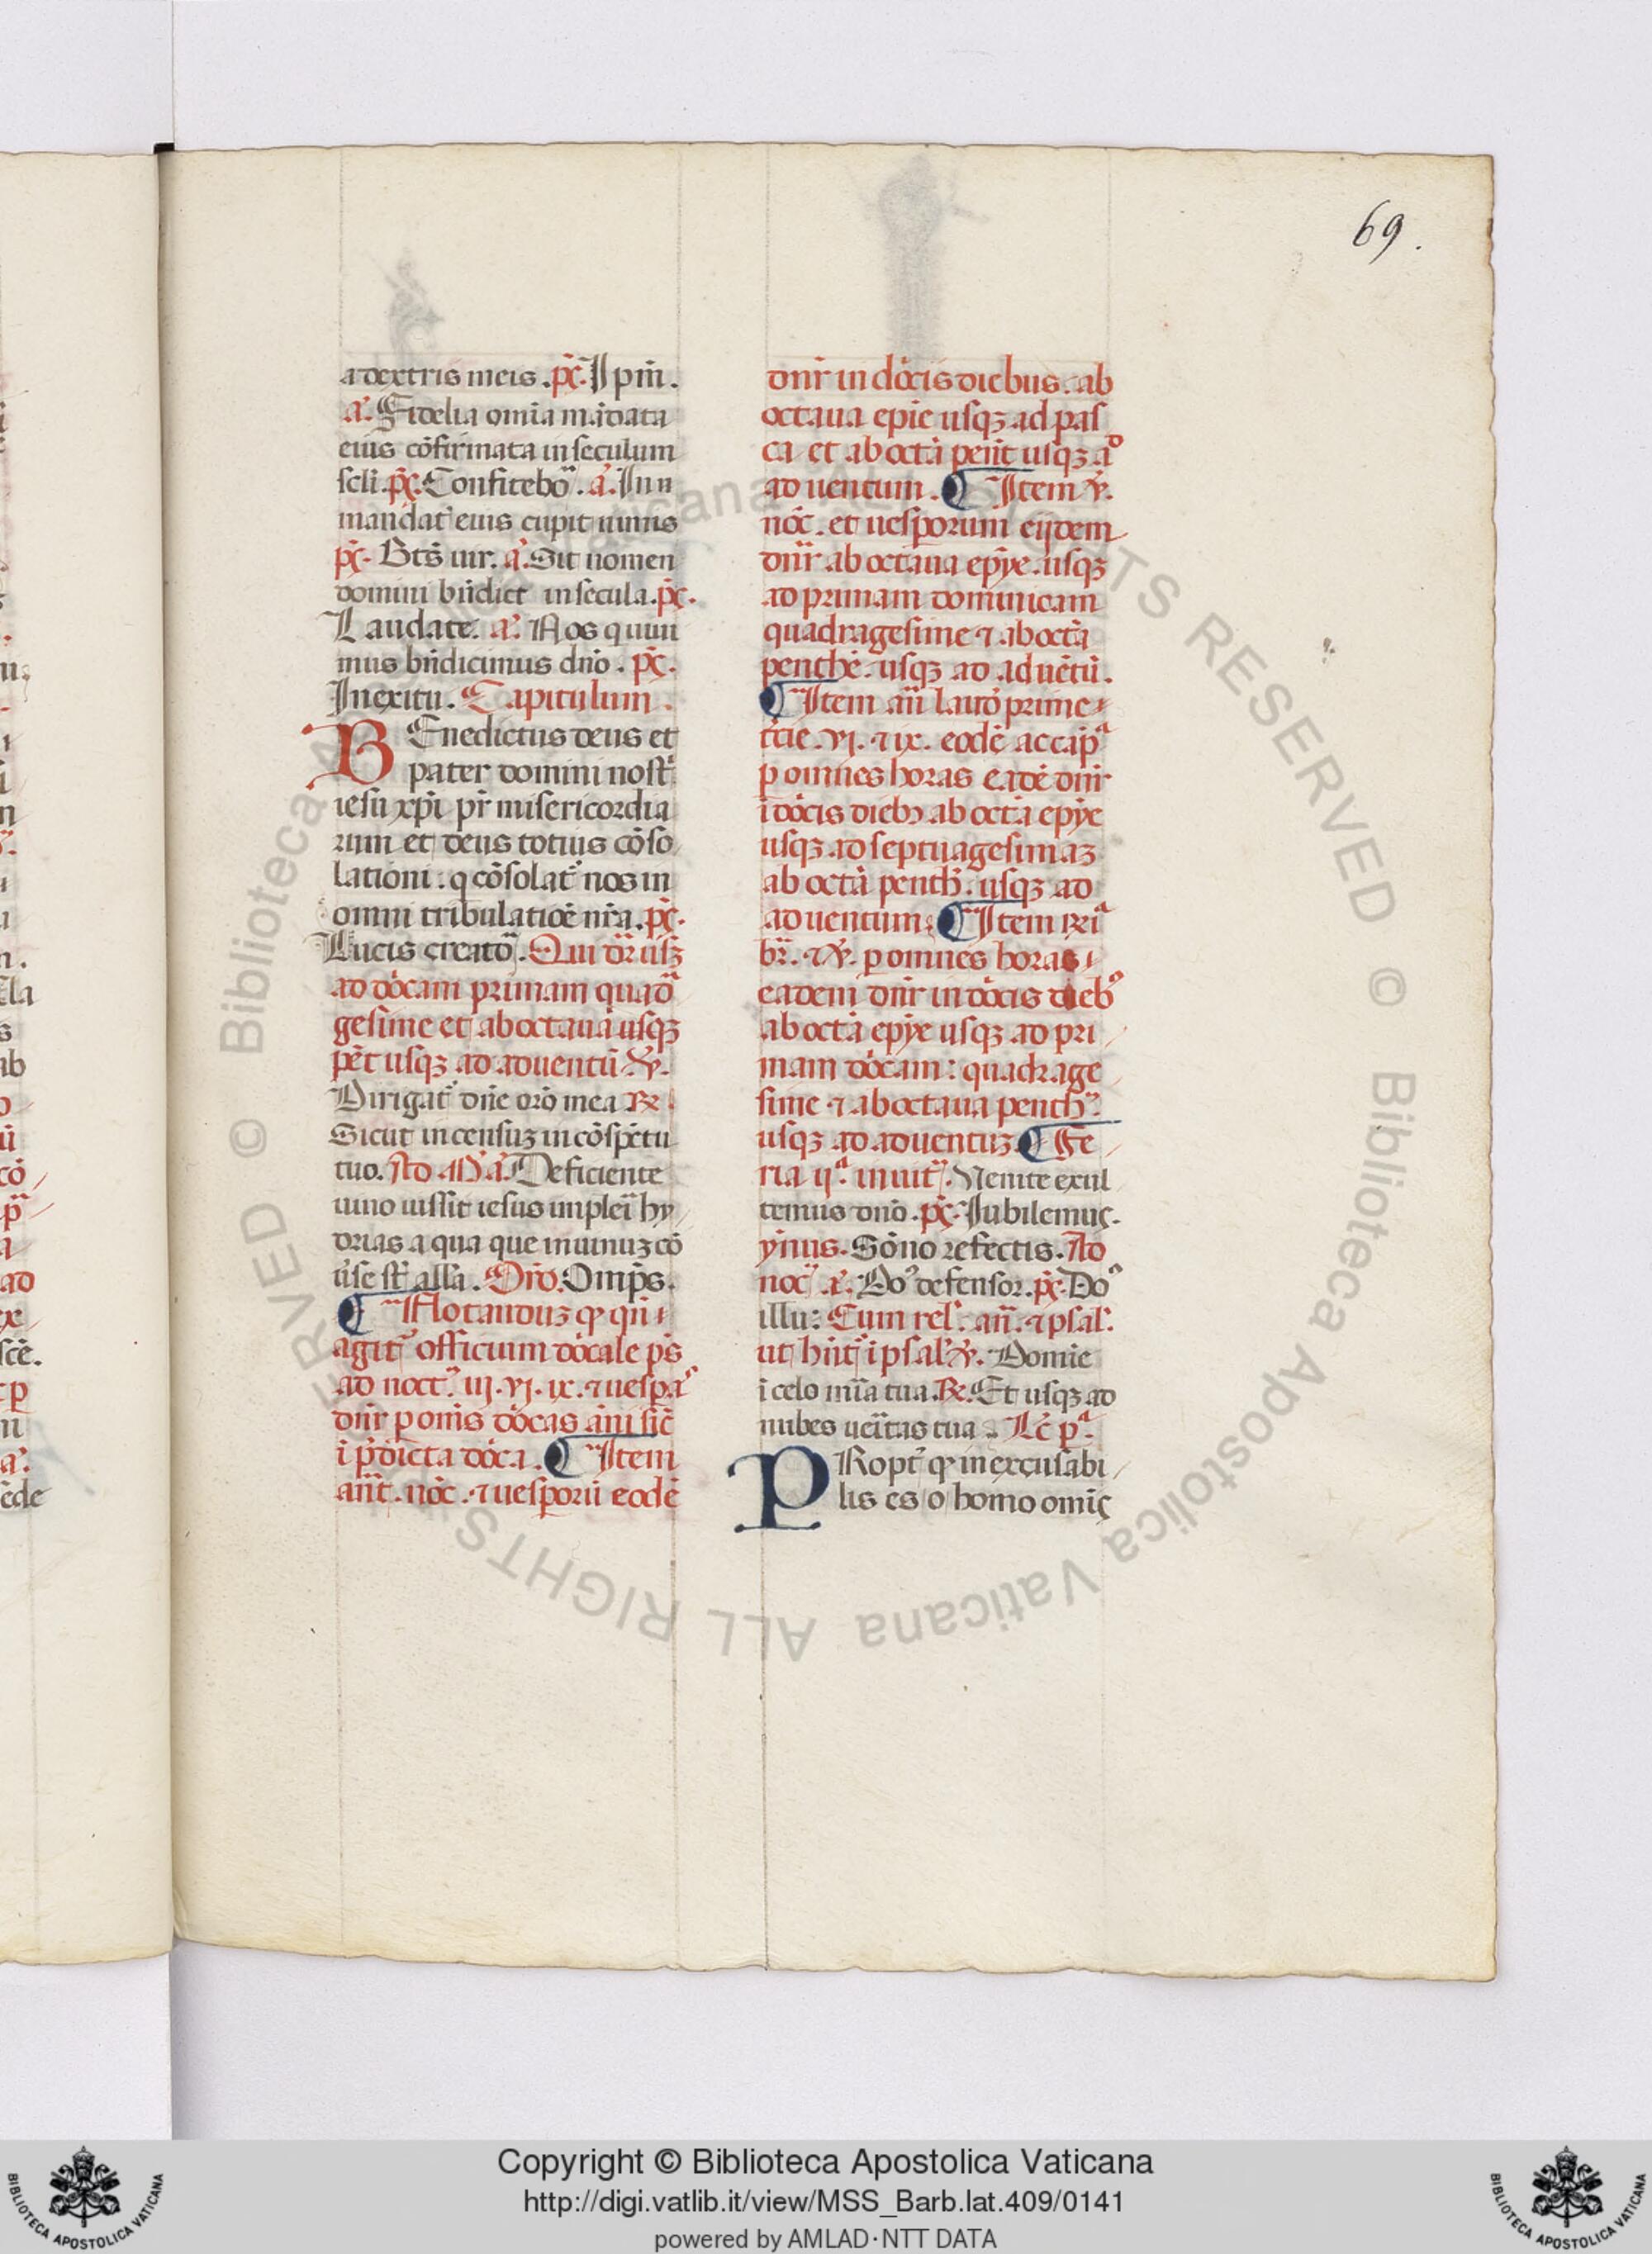 69.
a dextris meis. p̄s. Ipm̄.
a. Fidelia omīa mādata
eius cōfirmata in seculum
scl̄i. p̄s. Confitebo. a. In
mandat eius cupit nimis
p̄s. Bt̄s uir. a. Sit nomen
domini bn̄dict in secula. p̄s.
Laudate. a. Nos q uiui
mus bn̄dicimus dn̄o. p̄s.
In exitu. Capitulum.
BEnedictus deus et
pater domini nostr̄
iesū xp̄i pr̄ misericordia
rum et deus totius cōso
lationi: q cōsolat nos in
omni tribulatiōe nr̄a. p̄s.
Lucis creato. Qui dr̄ usq̨
ad dōcam primam quad
gesime et ab octaua usq̨
pēt usq̨ ad aduentū. ℣.
Dirigat dn̄e orō mea ℞
Sicut incensuz in cōspētu
tuo. Ad M̄ a. Deficiente
uino iussit iesus implei hy
drias aqua que in uinuz cō
ūse st̄ all̄a. Orō. Omp̄s.
¶ Notanduz q̨ qn̄
agit officium dōcale p̄s
ad noct. iij. vj. ix. ⁊ uesp̄a
dn̄r p om̄s dōcas ān̄i sic̄
i p̄dicta dōca. ¶ Item
an̄t. nōc. ⁊ uesporū eodē
dn̄r in dōcis diebus. ab
octaua epīe usq̨ ad pas
ca et ab octā pent̄ usq̨ ad
aduentum. ¶ Item ℣.
nōc. et uesporum eijdem
dn̄r ab octaua epȳe. usq̨
ad primam dominicam
quadragesime ⁊ ab octā
penthē. usq̨ ad aduētū.
¶ Item an̄ laud prime
tcie. vj. ⁊ ix. eodē accip
p omnes horas eadē dn̄r
i dōcis dieb̨ ab octā epȳe
usq̨ ad septuagesimaz
ab octā penth̄. usq̨ ad
aduentum. ¶ Item rri
br̄. ⁊ ℣. p omnes horas
eadem dn̄r in dōcis dieb
ab octā epȳe usq̨ ad pri
mam dōcam: quadrage
sime ⁊ ab octaua penth̄.
usq̨ ad aduentuz. ¶ Fe
ria ij. inuit. Venite exul
temus dn̄o. p̄s. Iubilemus.
ymnus. Sōno refectis. Ad
noc. a. Do defensor. p̄s. Do
illu: Cum rel. an̄. ⁊ psal.
ut hn̄t i psal ℣. Domīe
i celo mīa tua. ℞. Et usq̨ ad
nubes ueītas tua. Lc̄ p.
PRopt q̨ inexcusabi
lis es o homo omīs
© Biblioteca Apostolica Vaticana ALL RIGHTS RESERVED © Biblioteca Apostolica Vaticana ALL RIGHTS RESERVED
BIBLIOTECA APOSTOLICA VATICANA
Copyright © Biblioteca Apostolica Vaticana
http://digi.vatlib.it/view/MSS_Barb.lat.409/0141
powered by AMLAD·NTT DATA
BIBLIOTECA APOSTOLICA VATICANA